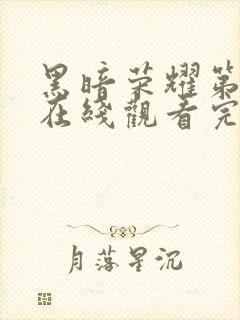 黑暗荣耀第
在线觀看完
月落星沉